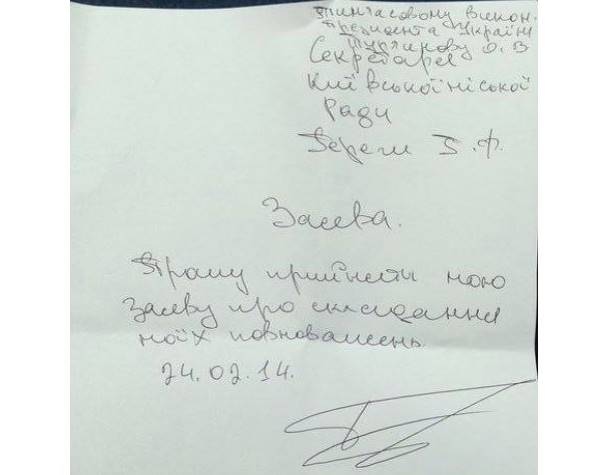 Тимчасовому викон.
Президента України
Турчинову О. В
Секретаря
Київської міської
Ради
Береги Б. Ф.
Заява.
Прошу прийняти мою
Заяву про складання
моїх повноважень.
24.02.14.